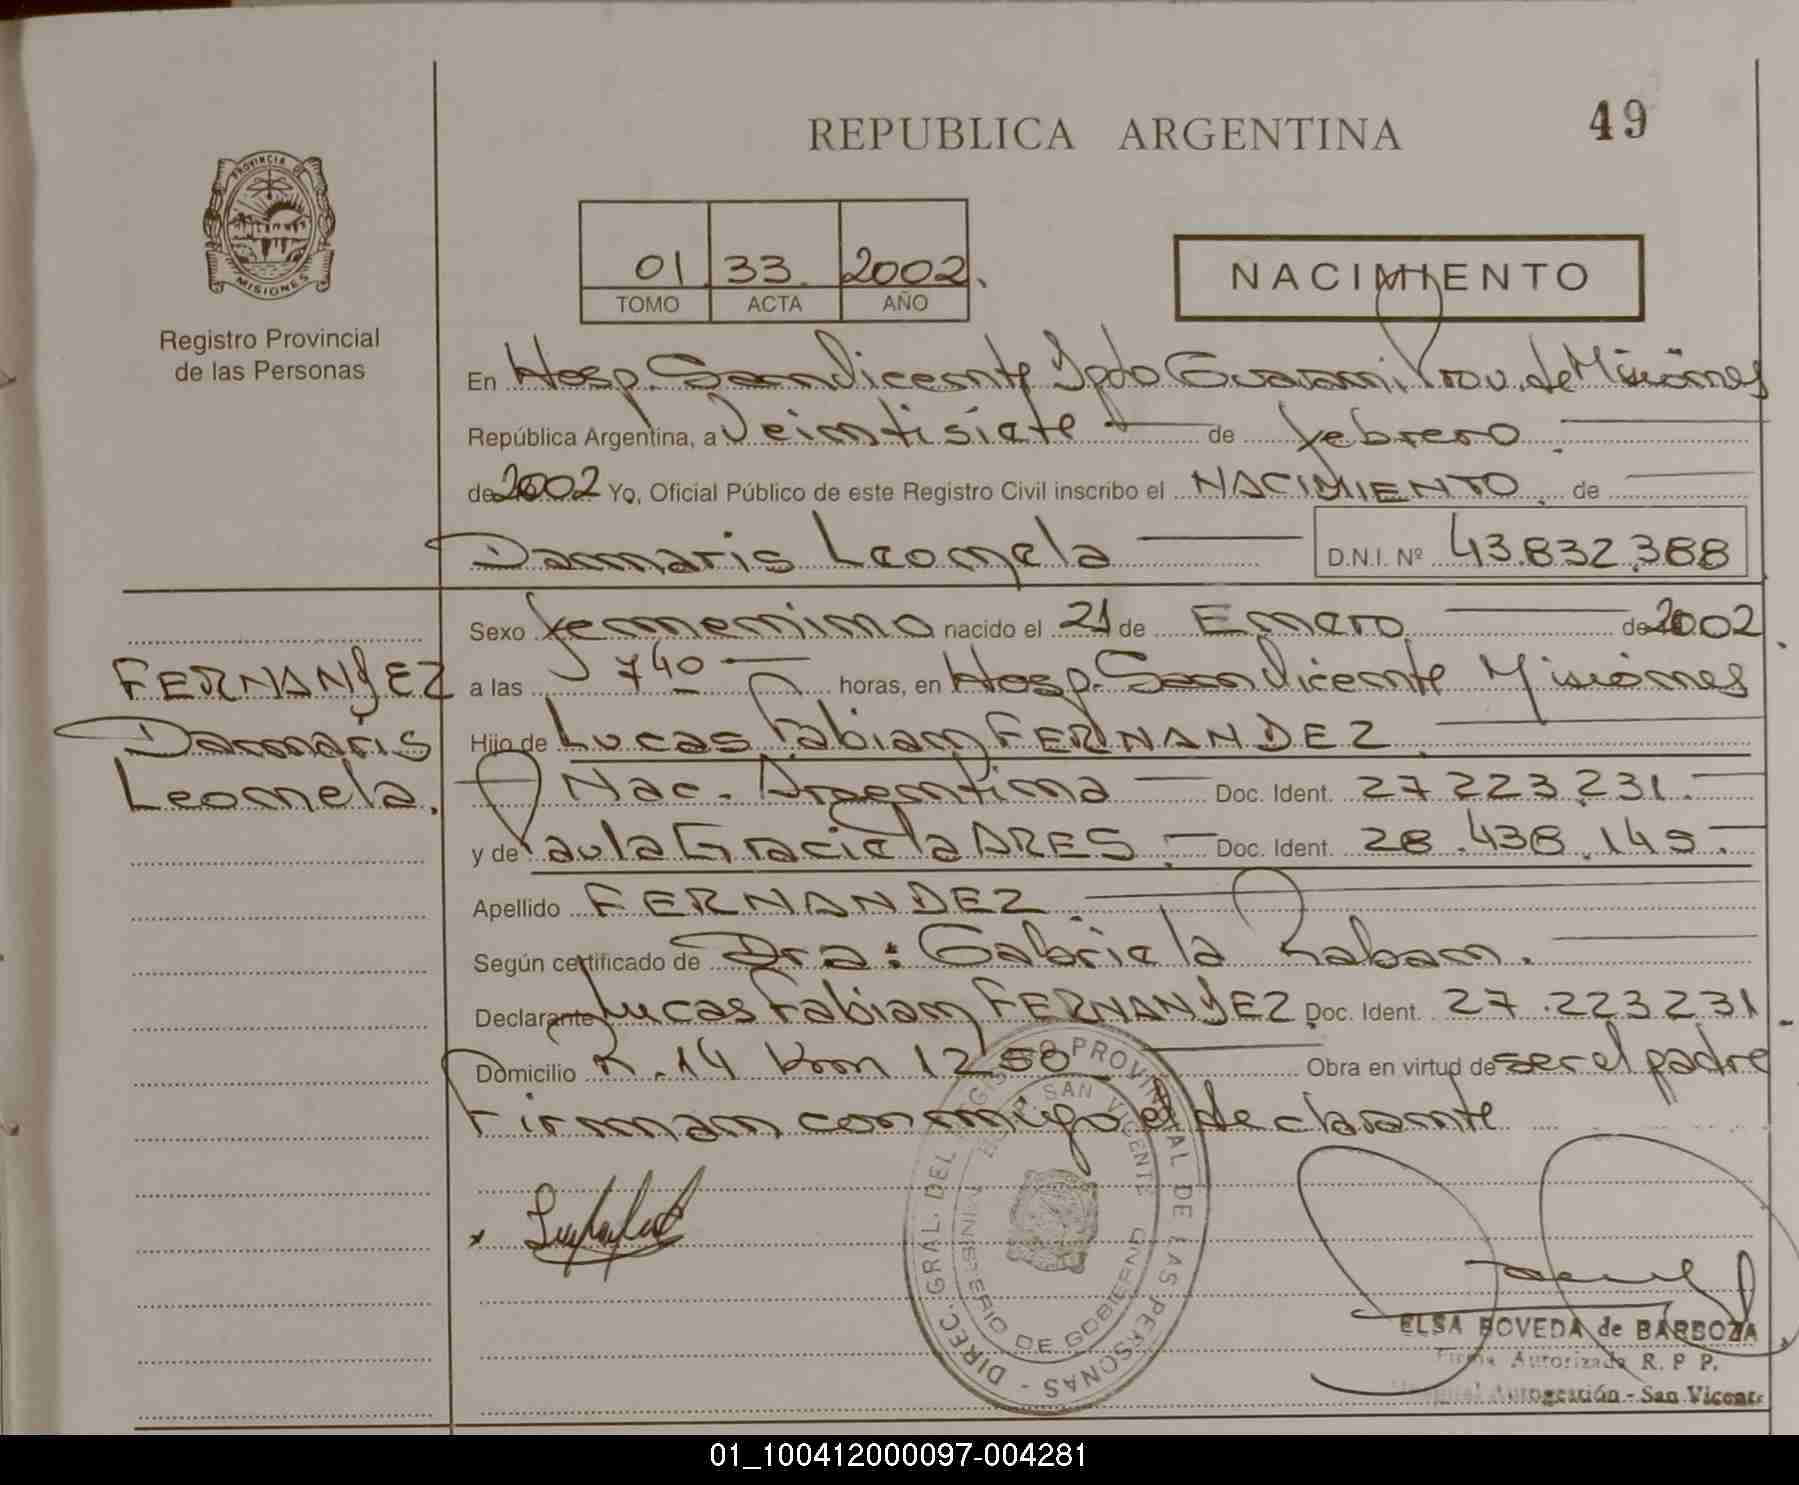 49
REPUBLICA ARGENTINA
PROVINCIA DE
MISIONES
Registro Provincial
de las Personas
01 33. 2002.
TOMO ACTA AÑO
NACIMIENTO
En Hosp. San Vicente Dpto Guarani, Prov. de Misiones
República Argentina, a Veintisiete de febrero.
de 2002 Yo, Oficial Público de este Registro Civil inscribo el NACIMIENTO. de
Damaris Leonela D.N.I. Nº 43.832.388
Sexo femenino nacido el 21 de Enero de 2002.
a las 740 horas, en Hosp. San Vicente Misiones
Hijo de Lucas Fabian FERNANDEZ.
Nac. Argentina Doc. Ident. 27.223.231.
y de Paula Graciela ARES. Doc. Ident. 28.438.145.
Apellido FERNANDEZ.
Según certificado de Dra: Gabriela Raban.
Declarante Lucas Fabian FERNANDEZ. Doc. Ident. 27.223.231.
Domicilio R. 14 Km 1250 Obra en virtud de ser el padre
Firman conmigo el declarante
FERNANDEZ
Damaris
Leonela.
DIREC. GRAL. DEL REGISTRO PROVINCIAL DE LAS PERSONAS
SAN VICENTE
MINISTERIO DE GOBIERNO
ELSA BOVEDA de BARBOZA
Firma Autorizada R. P. P.
Hospital Autogestión - San Vicente
01_100412000097-004281